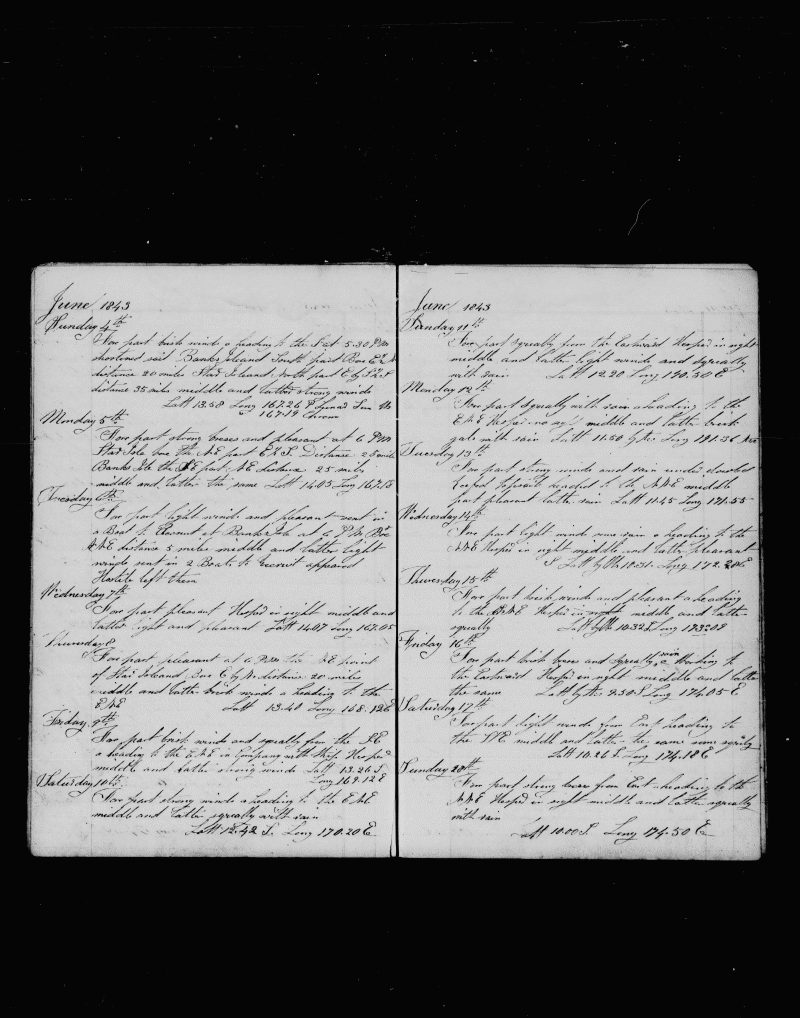 June 1843
Sunday 4th
Fore part brisk winds a heading to the S at 5.30 PM
shortened sail Banks Island South part Bore E
distance 20 miles Star Island North part E by S
distance 35 miles middle and latter strong winds
Latt 13.58 Long 167.26 E
167.19 Chrono
Monday 5th
Fore part strong breses and pleasant at 6 PM
Star Isle bore the NE part Distance 25 miles
Banks Isle the SE part NE distance 25 miles
middle and latter the same Latt 14.05 Long 167.15
Tuesday 6th
Fore part light winds and pleasant sent in
a Boat to Recruit at Banks Isle at 6 PM Bore
NNE distance 5 miles middle and latter light
winds sent in 2 Boats to Recruit appeared
Hostile left them
Wednesday 7th
Fore part pleasant Keeped in sight middle and
latter light and pleasant Latt 14.07 Long 167.05
Thursday 8
Fore part pleasant at 6 PM the NE point
of Star Island Bore E by N distance 20 miles
middle and latter brisk winds a heading to the
ENE Latt 13.40 Long 168.12 E
Friday 9th
Fore part brisk winds and squally from the SE
a heading to the ENE in Company with Ship Keeped
middle and latter strong winds Latt 13.26 S
Long 169.12 E
Saturday 10th
Fore part strong winds a heading to the ENE
middle and latter squally with rain
Latt 12.42 S. Long 170.20 E
June 1843
Sunday 11th
Fore part squally from the Eastward Keeped in sight
middle and latter light winds and squally
with rain Latt 12.20 Long 170.50 E
Monday 12th
Fore part squally with rain a heading to the
ENE middle and latter brisk
gale with rain Latt 11.50 Long 171.36
Tuesday 13th
Fore part strong winds and rain under doubled
reefed Topsails headed to the NNE middle
part pleasant latter rain Latt 11.45 Long 171.55
Wednesday 14th
Fore part light winds some rain a heading to the
NNE Keeped in sight middle and latter pleasant
Latt by 10.31 Long 172.20 E
Thursday 15th
Fore part brisk winds and pleasant a heading
to the NNE Keeped in sight middle and latter
squally Latt by 10.32 S Long 173.08
Friday 16th
Fore part brisk breses and squally rain a Working to
the Eastward Keeped in sight middle and latter
the same Latt by 9.50 S Long 174.05 E
Saturday 17th
Fore part light winds from East heading to
the NNE middle and latter the same some squally
Latt 10.26 S Long 174.18 E
Sunday
Fore part strong breses from East heading to the
NNE Keeped in sight middle and latter squally
with rain
Latt 10.00 S. Long 174.50 E